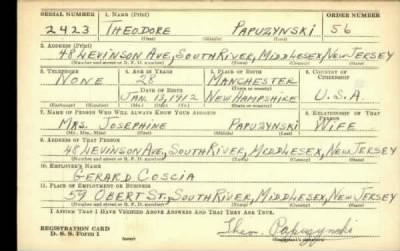 SERIAL NUMBER 1. NAME (Print) ORDER NUMBER
2423 THEODORE PAPUZYNSKI 56
(First) (Middle) (Last)
2. ADDRESS (Print)
48 LEVINSON AVE, SOUTH RIVER, MIDDLESEX, NEW JERSEY
(Number and street or R. F. D. number) (Town) (County) (State)
3. TELEPHONE 4. AGE IN YEARS 5. PLACE OF BIRTH 6. COUNTRY OF CITIZENSHIP
NONE 28 MANCHESTER
DATE OF BIRTH (Town or county)
JAN. 13, 1912 NEW HAMPSHIRE U.S.A
(Exchange) (Number) (Mo.) (Day) (Yr.) (State or country)
7. NAME OF PERSON WHO WILL ALWAYS KNOW YOUR ADDRESS 8. RELATIONSHIP OF THAT PERSON
MRS. JOSEPHINE PAPUZYNSKI WIFE
(Mr., Mrs., Miss) (First) (Middle) (Last)
9. ADDRESS OF THAT PERSON
48 LEVINSON AVE, SOUTH RIVER, MIDDLESEX, NEW JERSEY
(Number and street or R. F. D. number) (Town) (County) (State)
10. EMPLOYER'S NAME
GERARD COSCIA
11. PLACE OF EMPLOYMENT OR BUSINESS
OBERT ST, SOUTH RIVER, MIDDLESEX, NEW JERSEY
(Number and street or R. F. D. number) (Town) (County) (State)
I AFFIRM THAT I HAVE VERIFIED ABOVE ANSWERS AND THAT THEY ARE TRUE.
REGISTRATION CARD
D. S. S. Form 1 (over) Theo. Papuzynski
(Registrant's signature)